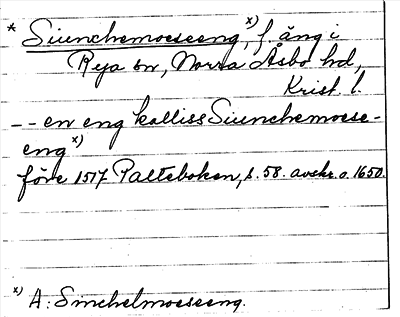 * Siunchemoeseeng, x) f. äng i
Rya sn, Norra Åsbo hd,
Krist. l.
-- en eng kalliss Siunchemoese-
eng x)
före 1517 Palteboken, s. 58. avskr. o. 1650.
x) A: Smehelmoeseeng.